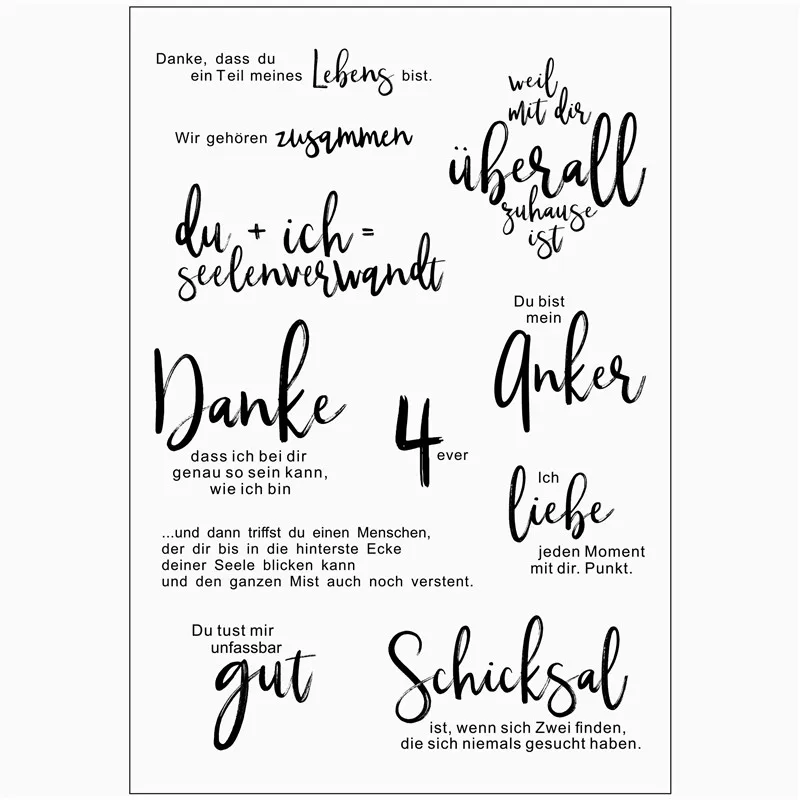 Danke, dass du
ein Teil meines Lebens bist.
weil
mit dir
überall
zuhause
ist
Wir gehören zusammen
du + ich =
seelenverwandt
Du bist
mein
Anker
Danke
dass ich bei dir
genau so sein kann,
wie ich bin
4
ever
Ich
liebe
jeden Moment
mit dir. Punkt.
...und dann triffst du einen Menschen,
der dir bis in die hinterste Ecke
deiner Seele blicken kann
und den ganzen Mist auch noch verstent.
Du tust mir
unfassbar
gut
Schicksal
ist, wenn sich Zwei finden,
die sich niemals gesucht haben.